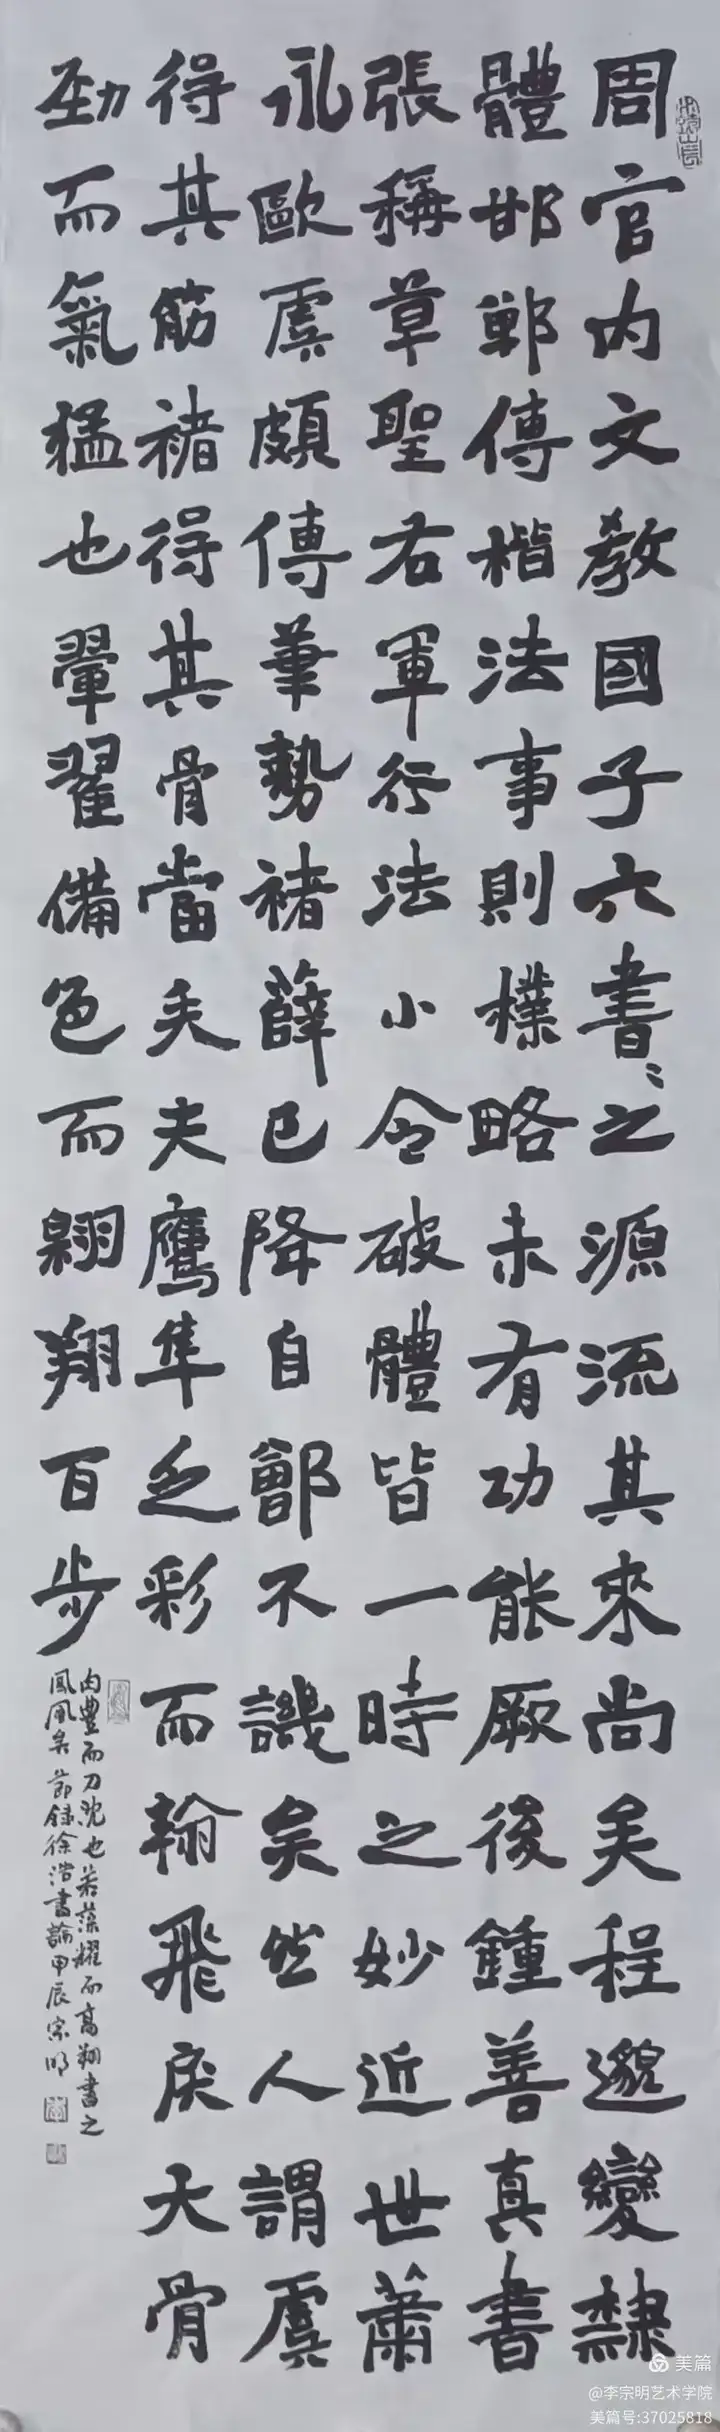 周官内文教國子六書〻之源流其來尚矣程邈變隸
體邯鄲傳楷法事則樸略未有功能厥後鍾善真書
張稱草聖右軍行法小令破體皆一時之妙近世蕭
永歐虞頗傳筆勢褚薛已降自鄶不譏矣然人謂虞
得其筋褚得其骨當矣夫鷹隼乏彩而翰飛戾天骨
勁而氣猛也翬翟備色而翱翔百步
肉豐而力沈也若藻耀而高翔書之
鳳凰矣節錄徐浩書論甲辰宗明
美篇
@李宗明艺术学院
美篇号:37025818